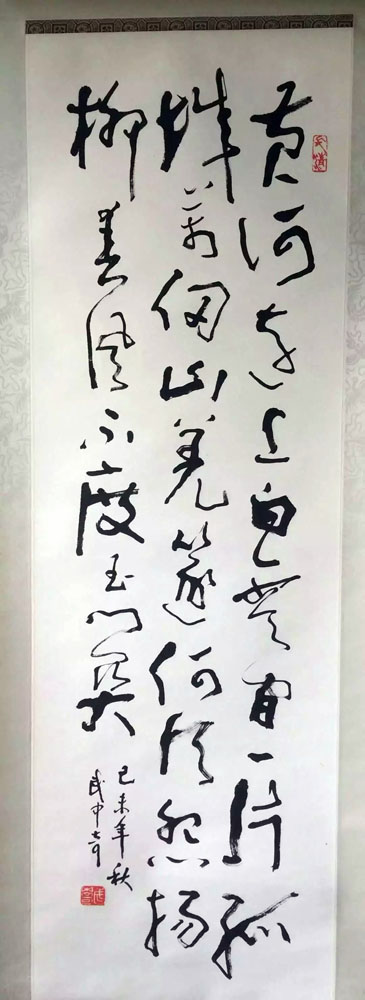 黄河远上白云间一片孤
城万仞山羌笛何须怨杨
柳春风不度玉门关
己未年秋
武中奇